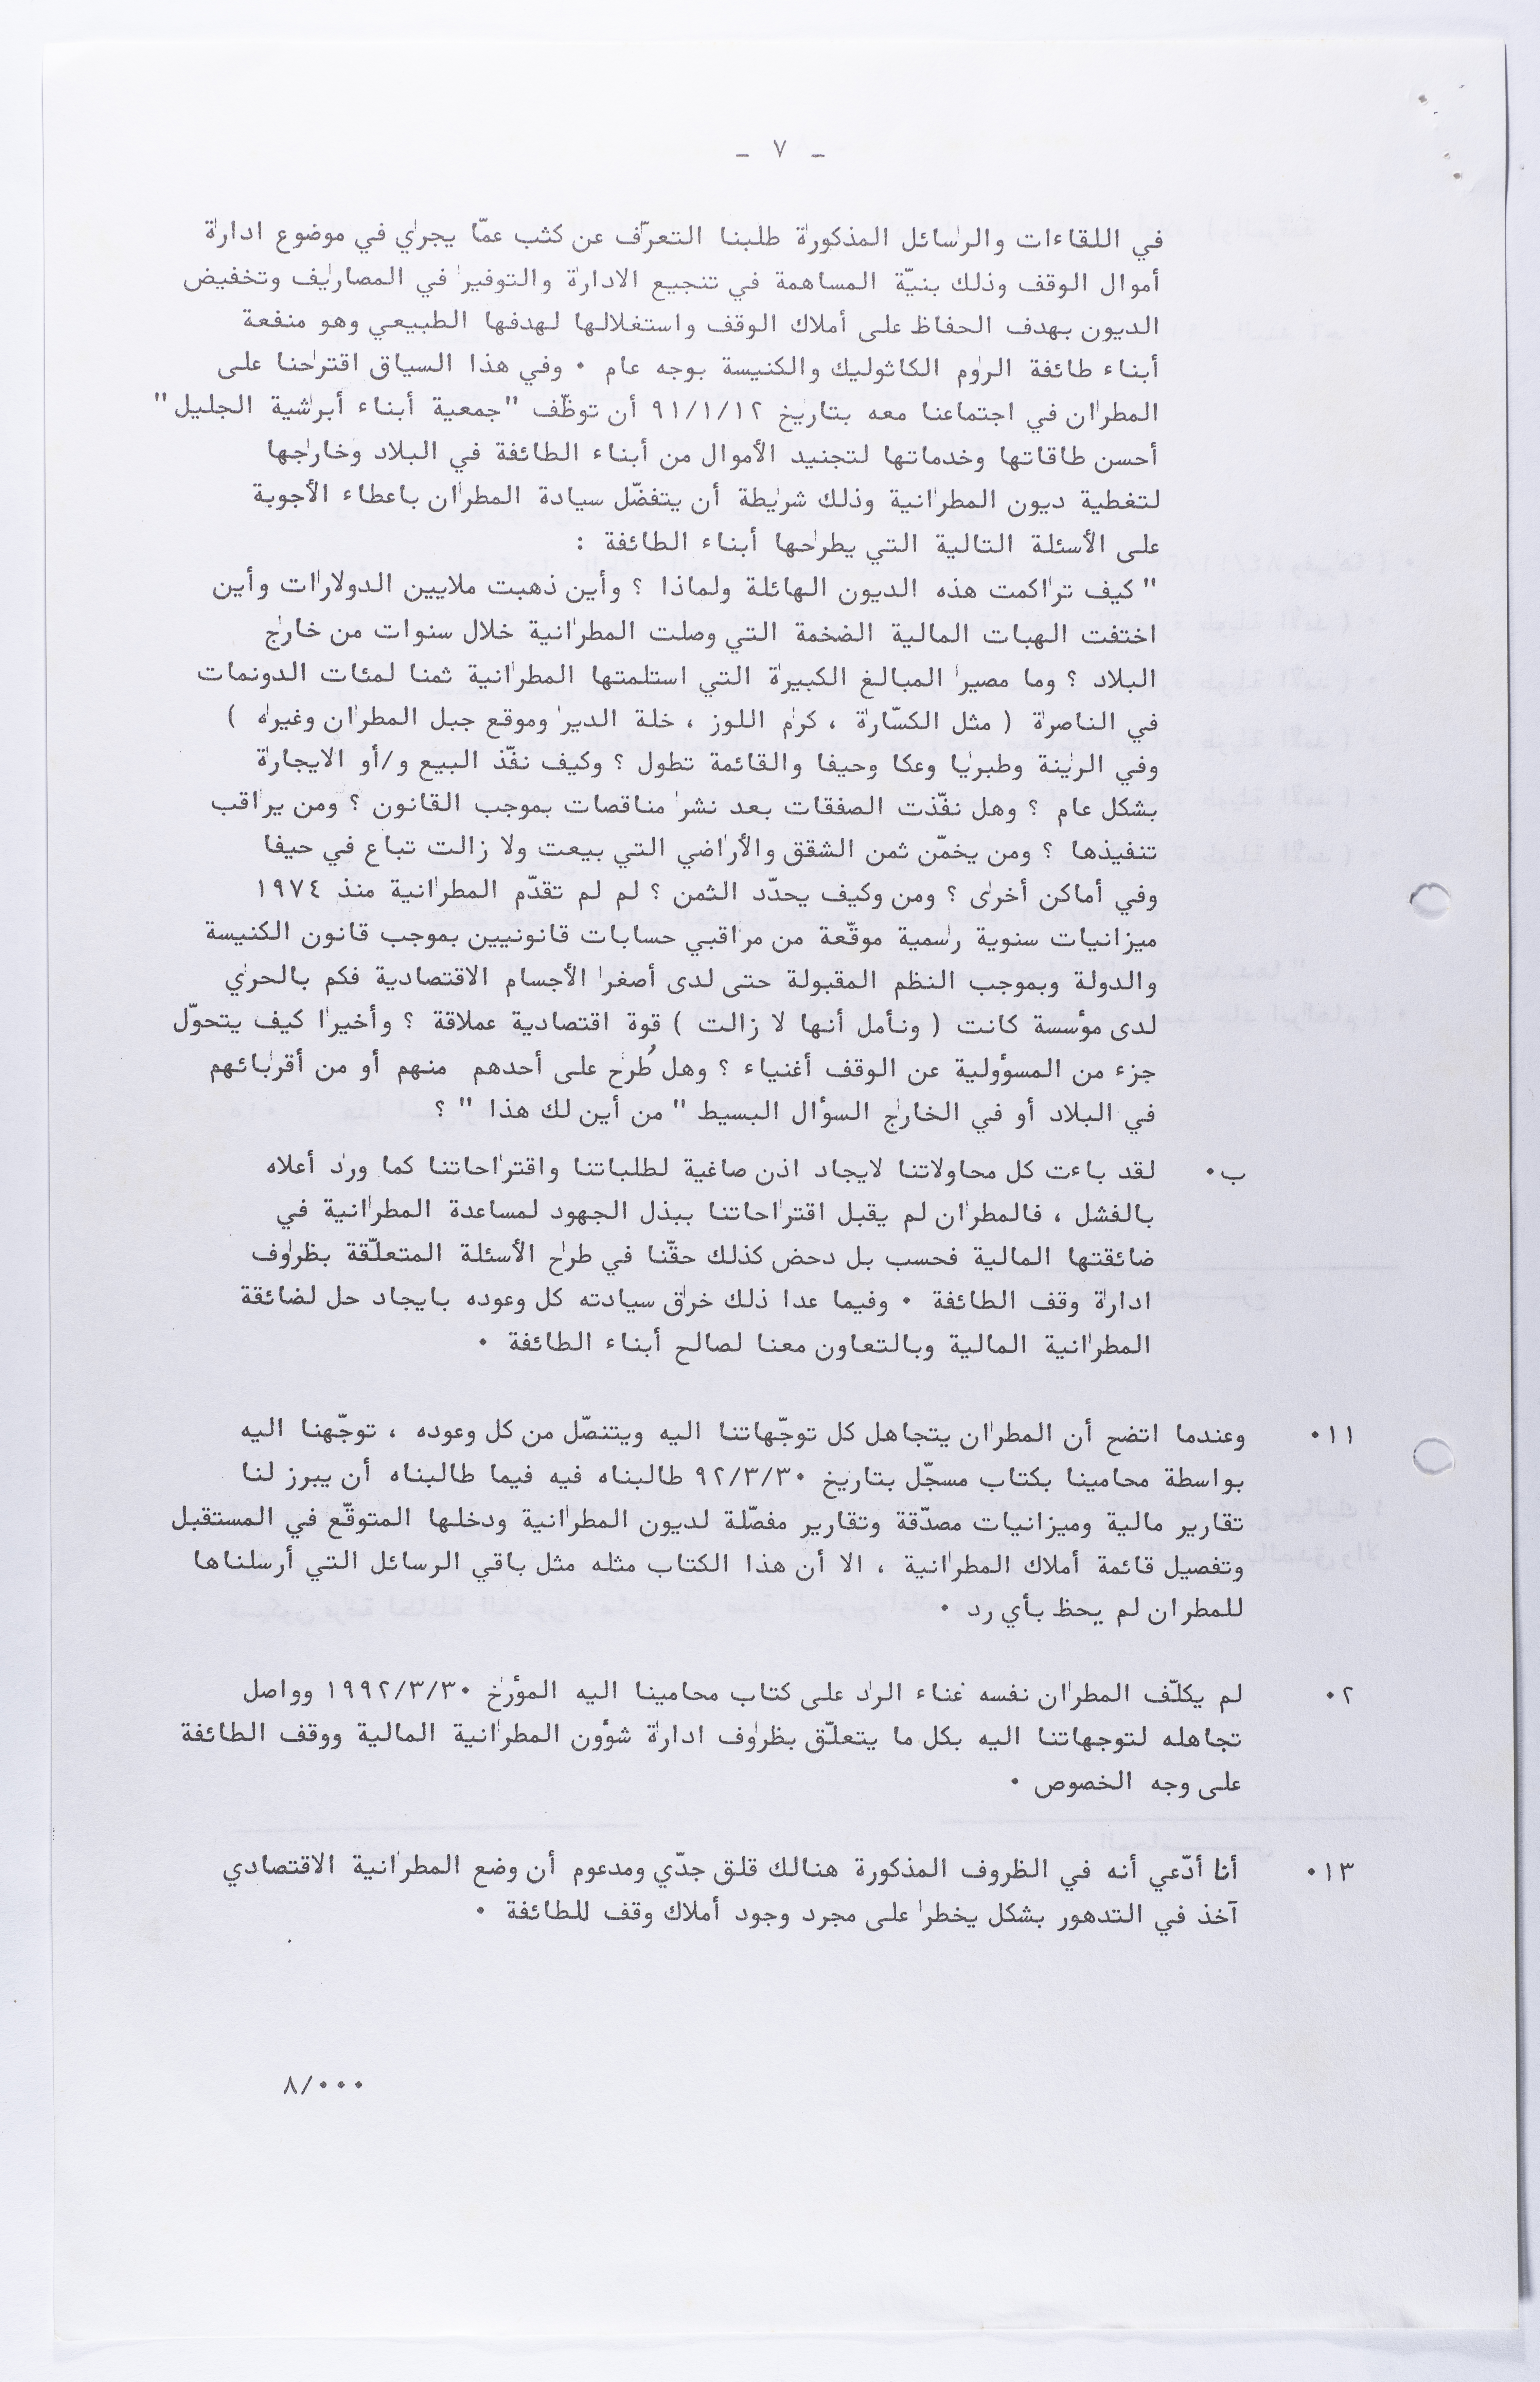 - ٧ -
في اللقاءات والرسائل المذكورة طلبنا التعرّف عن كثب عمّا يجري في موضوع ادارة
أموال الوقف وذلك بنيّة المساهمة في تنجيع الادارة والتوفير في المصاريف وتخفيض
الديون بهدف الحفاظ على أملاك الوقف واستغلالها لهدفها الطبيعي وهو منفعة
أبناء طائفة الروم الكاثوليك والكنيسة بوجه عام ٠ وفي هذا السياق اقترحنا على
المطران في اجتماعنا معه بتاريخ ٩١/١/١٢ أن توظّف "جمعية أبناء أبرشية الجليل"
أحسن طاقاتها وخدماتها لتجنيد الأموال من أبناء الطائفة في البلاد وخارجها
لتغطية ديون المطرانية وذلك شريطة أن يتفضّل سيادة المطران باعطاء الأجوبة
على الأسئلة التالية التي يطرحها أبناء الطائفة :
" كيف تراكمت هذه الديون الهائلة ولماذا ؟ وأين ذهبت ملايين الدولارات وأين
اختفت الهبات المالية الضخمة التي وصلت المطرانية خلال سنوات من خارج
البلاد ؟ وما مصير المبالغ الكبيرة التي استلمتها المطرانية ثمنا لمئات الدونمات
في الناصرة ( مثل الكسّارة ، كرم اللوز ، خلة الدير وموقع جبل المطران وغيره )
وفي الرينة وطبريا وعكا وحيفا والقائمة تطول ؟ وكيف نفّذ البيع و/أو الايجارة
بشكل عام ؟ وهل نفّذت الصفقات بعد نشر مناقصات بموجب القانون ؟ ومن يراقب
تنفيذها ؟ ومن يخمّن ثمن الشقق والأراضي التي بيعت ولا زالت تباع في حيفا
وفي أماكن أخرى ؟ ومن وكيف يحدّد الثمن ؟ لم لم تقدّم المطرانية منذ ١٩٧٤
ميزانيات سنوية رسمية موقّعة من مراقبي حسابات قانونيين بموجب قانون الكنيسة
والدولة وبموجب النظم المقبولة حتى لدى أصغر الأجسام الاقتصادية فكم بالحري
لدى مؤسسة كانت ( ونأمل أنها لا زالت ) قوة اقتصادية عملاقة ؟ وأخيرا كيف يتحوّل
جزء من المسؤولية عن الوقف أغنياء ؟ وهل طُرح على أحدهم منهم أو من أقربائهم
في البلاد أو في الخارج السؤال البسيط " من أين لك هذا " ؟
ب٠ لقد باءت كل محاولاتنا لايجاد اذن صاغية لطلباتنا واقتراحاتنا كما ورد أعلاه
بالفشل ، فالمطران لم يقبل اقتراحاتنا ببذل الجهود لمساعدة المطرانية في
ضائقتها المالية فحسب بل دحض كذلك حقّنا في طرح الأسئلة المتعلّقة بظروف
ادارة وقف الطائفة ٠ وفيما عدا ذلك خرق سيادته كل وعوده بايجاد حل لضائقة
المطرانية المالية وبالتعاون معنا لصالح أبناء الطائفة ٠
١١٠ وعندما اتضح أن المطران يتجاهل كل توجّهاتنا اليه ويتنصّل من كل وعوده ، توجّهنا اليه
بواسطة محامينا بكتاب مسجّل بتاريخ ٩٢/٣/٣٠ طالبناه فيه فيما طالبناه أن يبرز لنا
تقارير مالية وميزانيات مصدّقة وتقارير مفصّلة لديون المطرانية ودخلها المتوقّع في المستقبل
وتفصيل قائمة أملاك المطرانية ، الا أن هذا الكتاب مثله مثل باقي الرسائل التي أرسلناها
للمطران لم يحظ بأي رد ٠
٢٠ لم يكلّف المطران نفسه غناء الرد على كتاب محامينا اليه المؤرخ ١٩٩٢/٣/٣٠ وواصل
تجاهله لتوجهاتنا اليه بكل ما يتعلّق بظروف ادارة شؤون المطرانية المالية ووقف الطائفة
على وجه الخصوص ٠
١٣٠ أنا أدّعي أنه في الظروف المذكورة هنالك قلق جدّي ومدعوم أن وضع المطرانية الاقتصادي
آخذ في التدهور بشكل يخطر على مجرد وجود أملاك وقف للطائفة ٠
٨/٠٠٠